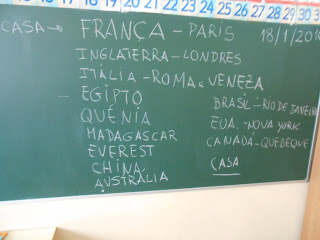 15 16 17 18 19 20 21 22 23 24 25 26 27 28 29 30
CASA → FRANÇA - PARIS
18/1/201
INGLATERRA - LONDRES
ITÁLIA - ROMA e VENEZA
- EGIPTO
QUÉNIA
MADAGASCAR
EVEREST
CHINA
AUSTRÁLIA
BRASIL - RIO DE JANEIRO
EUA - NOVA YORK
CANADÁ - QUEBEQUE
CASA